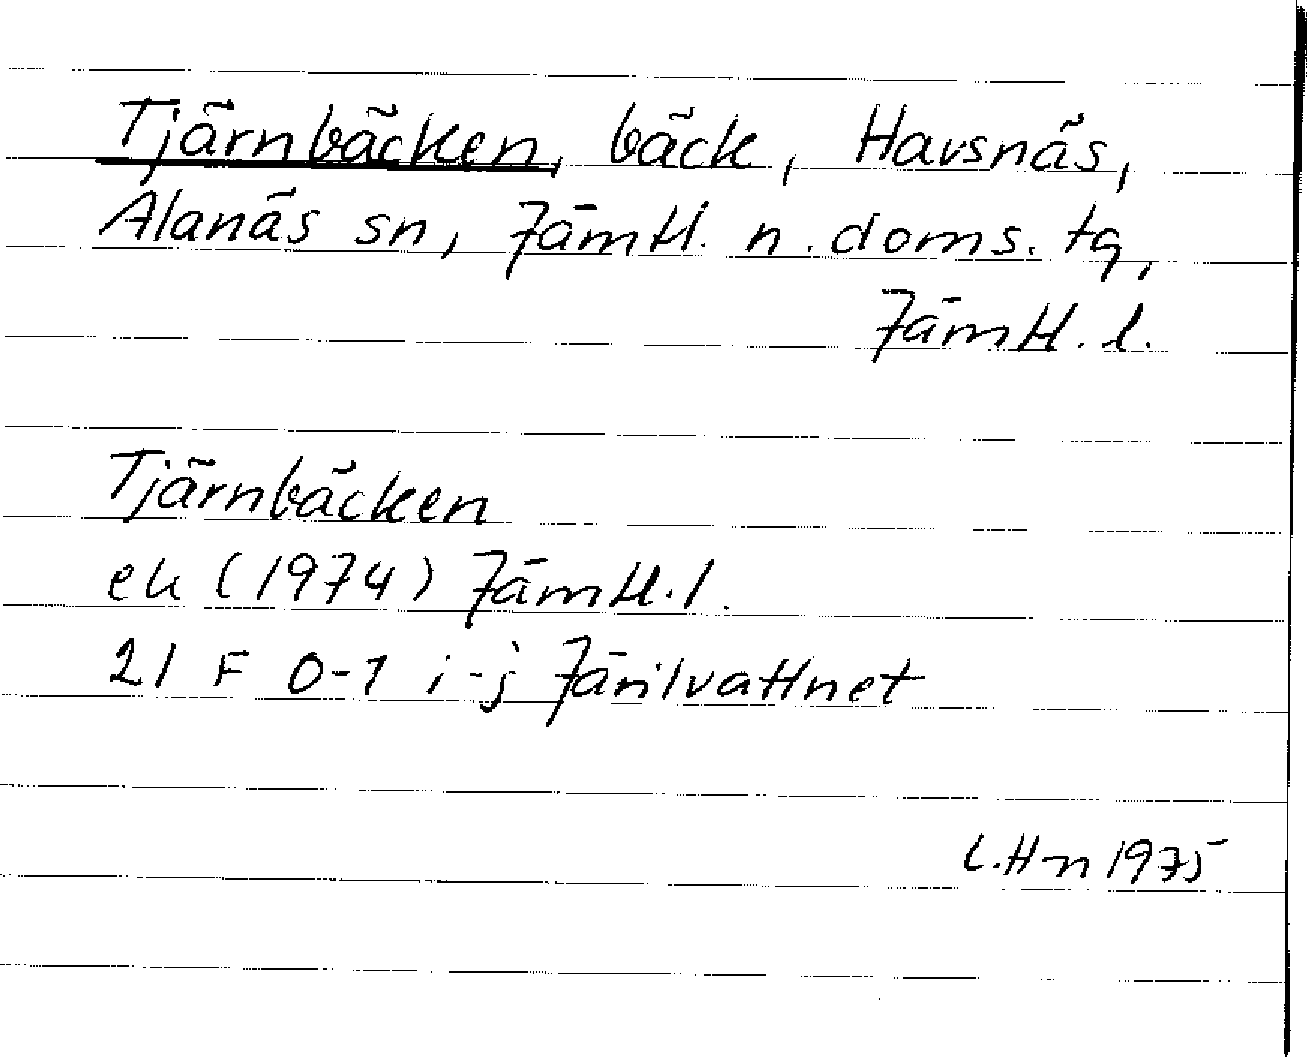 Tjärnbäcken, bäck, Havsnäs,
Alanäs sn, Jämtl. n. doms. tg,
Jämtl. l.
Tjärnbäcken
ek (1974) Jämtl. l.
21 F 0-1 i-j Järilvattnet
L.Hn 1975